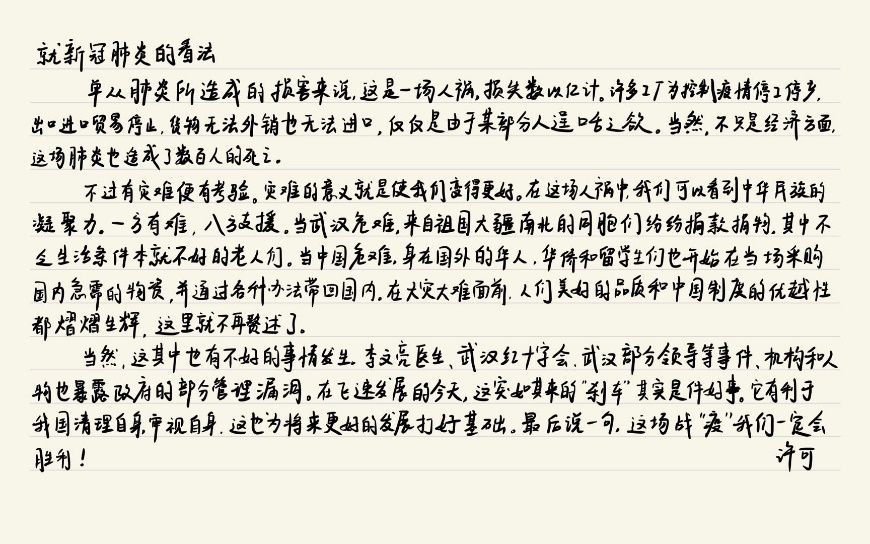 就新冠肺炎的看法
单从肺炎所造成的损害来说,这是一场人祸,损失数以亿计。许多工厂为控制疫情停工停产,
出口进口贸易停止,货物无法外销也无法进口,仅仅是由于某部分人逞口舌之欲。当然,不只是经济方面,
这场肺炎也造成了数百人的死亡。
不过有灾难便有考验。灾难的意义就是使我们变得更好。在这场人祸中,我们可以看到中华民族的
凝聚力。一方有难,八方支援。当武汉危难,来自祖国大疆南北的同胞们纷纷捐款捐物,其中不
乏生活条件本就不好的老人们。当中国危难,身在国外的华人,华侨和留学生们也开始在当场采购
国内急需的物资,并通过各种办法带回国内。在大灾大难面前,人们美好的品质和中国制度的优越性
都熠熠生辉,这里就不再赘述了。
当然,这其中也有不好的事情发生。李文亮医生、武汉红十字会、武汉部分领导等事件、机构和人
物也暴露政府的部分管理漏洞。在飞速发展的今天,这突如其来的“刹车”其实是件好事。它有利于
我国清理自身,审视自身,这也为将来更好的发展打好基础。最后说一句,这场战“疫”我们一定会
胜利!
许可